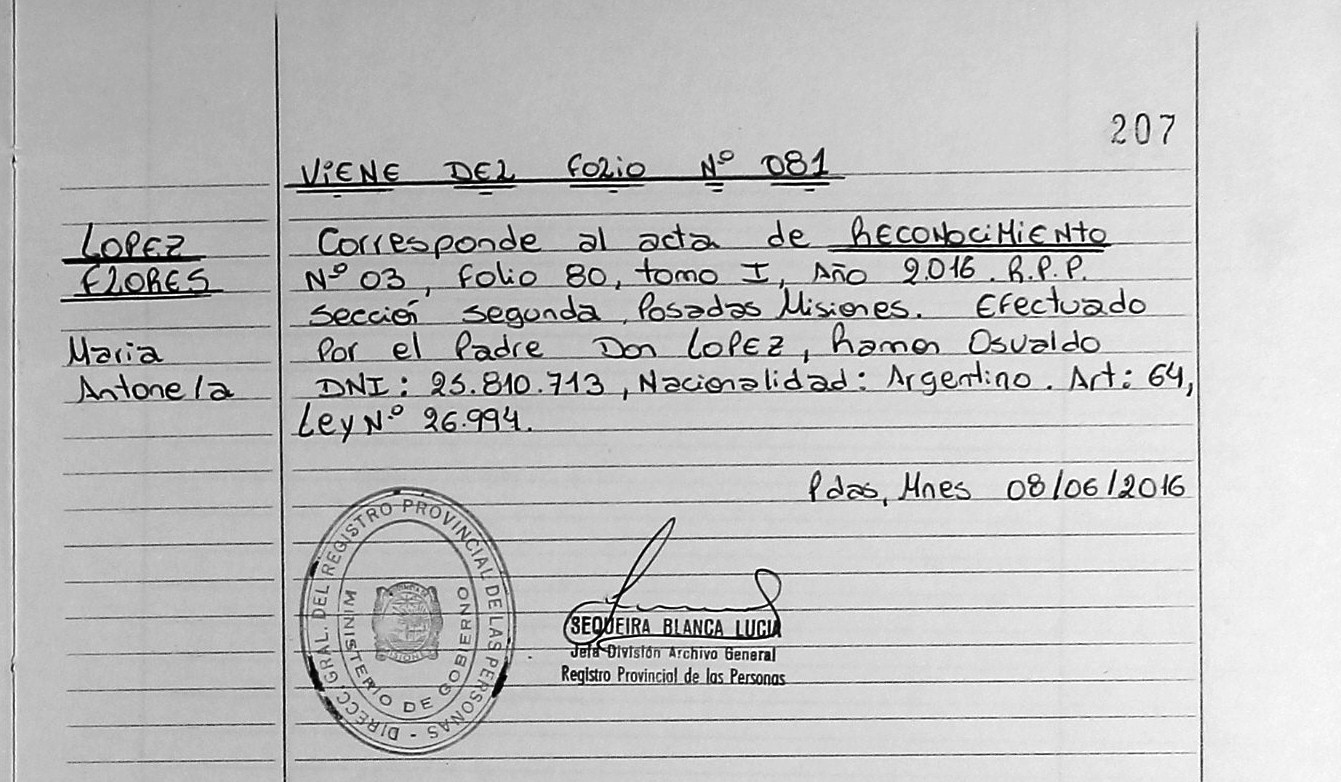 207
ViENE DEL FOLIO Nº 081
LOPEZ
FLORES
Maria
Antonela
Corresponde al acta de RECONOCIMIENTO
Nº 03, Folio 80, tomo I, Año 2.016. R.P.P.
Sección segunda, Posadas Misiones. Efectuado
Por el Padre Don LOPEZ, Ramon Osvaldo
DNI: 25.810.713, Nacionalidad: Argentino. Art: 64,
Ley Nº 26.994.
Pdas, Mnes 08/06/2016
DIRECC. GRAL. DEL REGISTRO PROVINCIAL DE LAS PERSONAS -
MINISTERIO DE GOBIERNO
MISIONES
SEQUEIRA BLANCA LUCIA
Jefa División Archivo General
Registro Provincial de las Personas